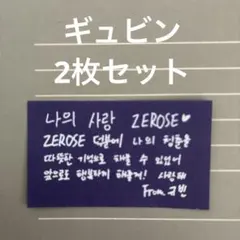 ギュビン
2枚セット
나의 사랑 ZEROSE ♥
ZEROSE 덕분에 나의 청춘을
따뜻한 기억으로 채울 수 있었어
앞으로도 행복하게 해줄게! 사랑해
From 규빈